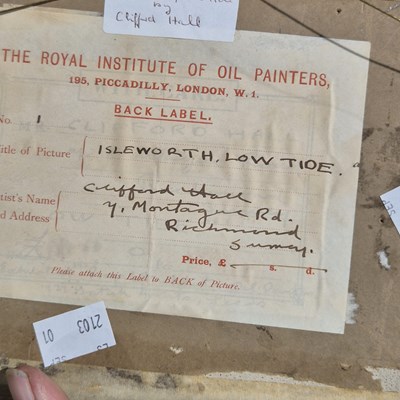 by
Clifford Hall
THE ROYAL INSTITUTE OF OIL PAINTERS,
195, PICCADILLY, LONDON, W.1.
BACK LABEL.
No. 1
Title of Picture ISLEWORTH, LOW TIDE.
tist's Name Clifford Hall
d Address 7, Montague Rd.
Richmond
Surrey.
Price, £ s. d.
Please attach this Label to BACK of Picture.
2103
01